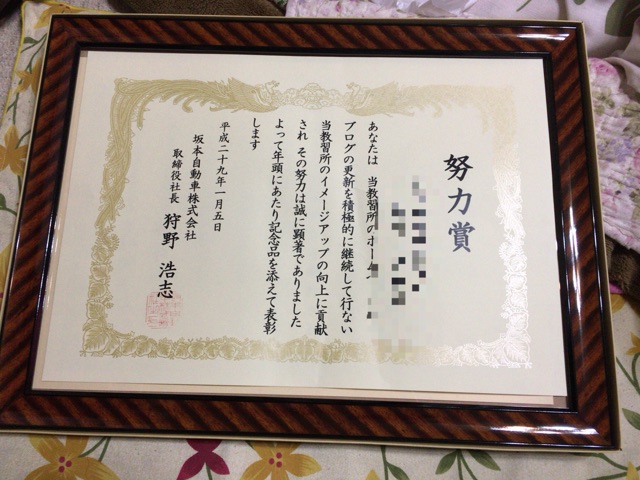 努力賞
あなたは 当教習所のホーム
ブログの更新を積極的に継続して行ない
当教習所のイメージアップの向上に貢献
され その努力は誠に顕著でありました
よって年頭にあたり記念品を添えて表彰
します
平成二十九年一月五日
坂本自動車株式会社
取締役社長 狩野 浩志